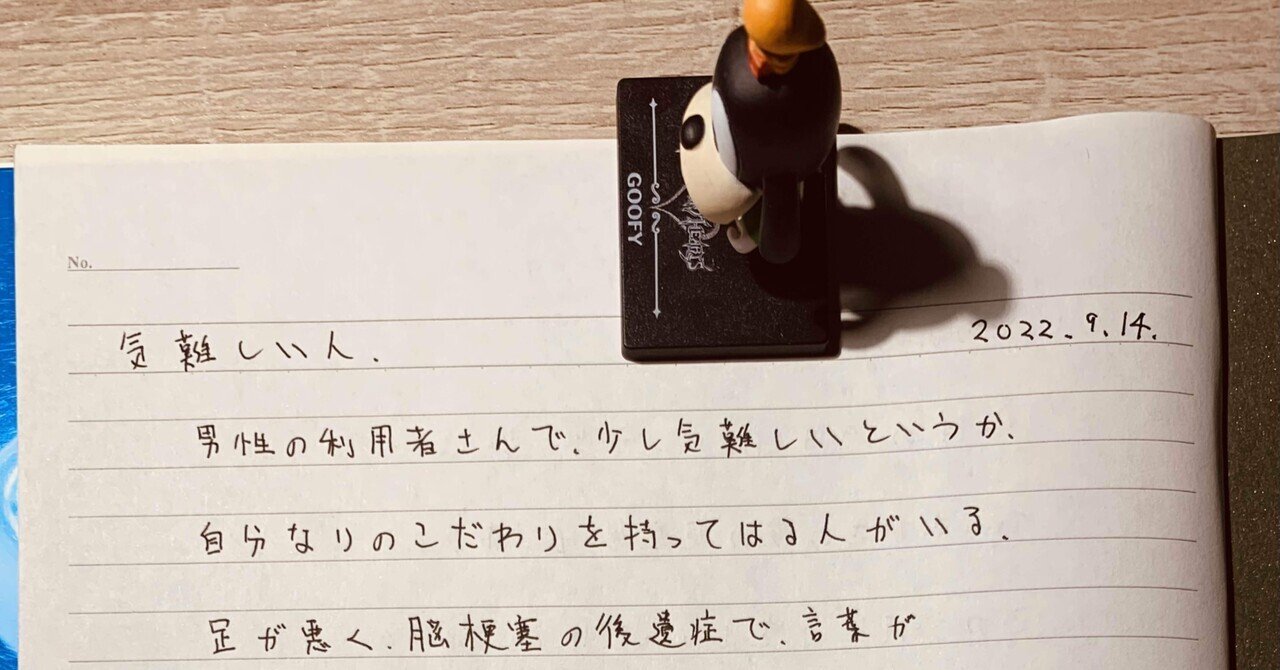 No.
GOOFY
HEARTS
気難しい人.
2022.9.14.
男性の利用者さんで、少し気難しいというか、
自分なりのこだわりを持ってはる人がいる。
足が悪く、脳梗塞の後遺症で、言葉が